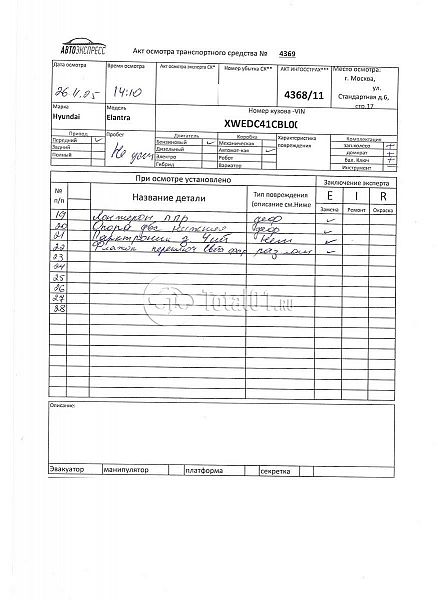 АВТОЭКСПРЕСС
Акт осмотра транспортного средства № 4369
Дата осмотра
Время осмотра
Акт осмотра эксперта СК*
Номер убытка СК**
АКТ ИНГОССТРАХ***
Место осмотра:
г. Москва,
ул.
Стандартная д.6,
стр.17
14:10
4368/11
Марка
Модель
Номер кузова -VIN
Hyundai
Elantra
XWEDC41CBL0
Привод
Пробег
Двигатель
Коробка
Характеристика повреждения
Комплектация
Передний
Бензиновый
Механическая
Зап.колесо +
Задний
Дизельный
Автомат-кая
домкрат +
Полный
Электро
Робот
Бал. Ключ +
Гибрид
Вариатор
Инструмент
При осмотре установлено
Заключение эксперта
№ п/п
Название детали
Тип повреждения
(описание см.Ниже
E I R
Замена Ремонт Окраска
19 Лонжерон ппр деф
20 Опора две нижняя деф
21 Парктроники з. 4шт нет
22
23
24
25
26
27
28
Total01.ru
Описание:
Эвакуатор манипулятор платформа секретка